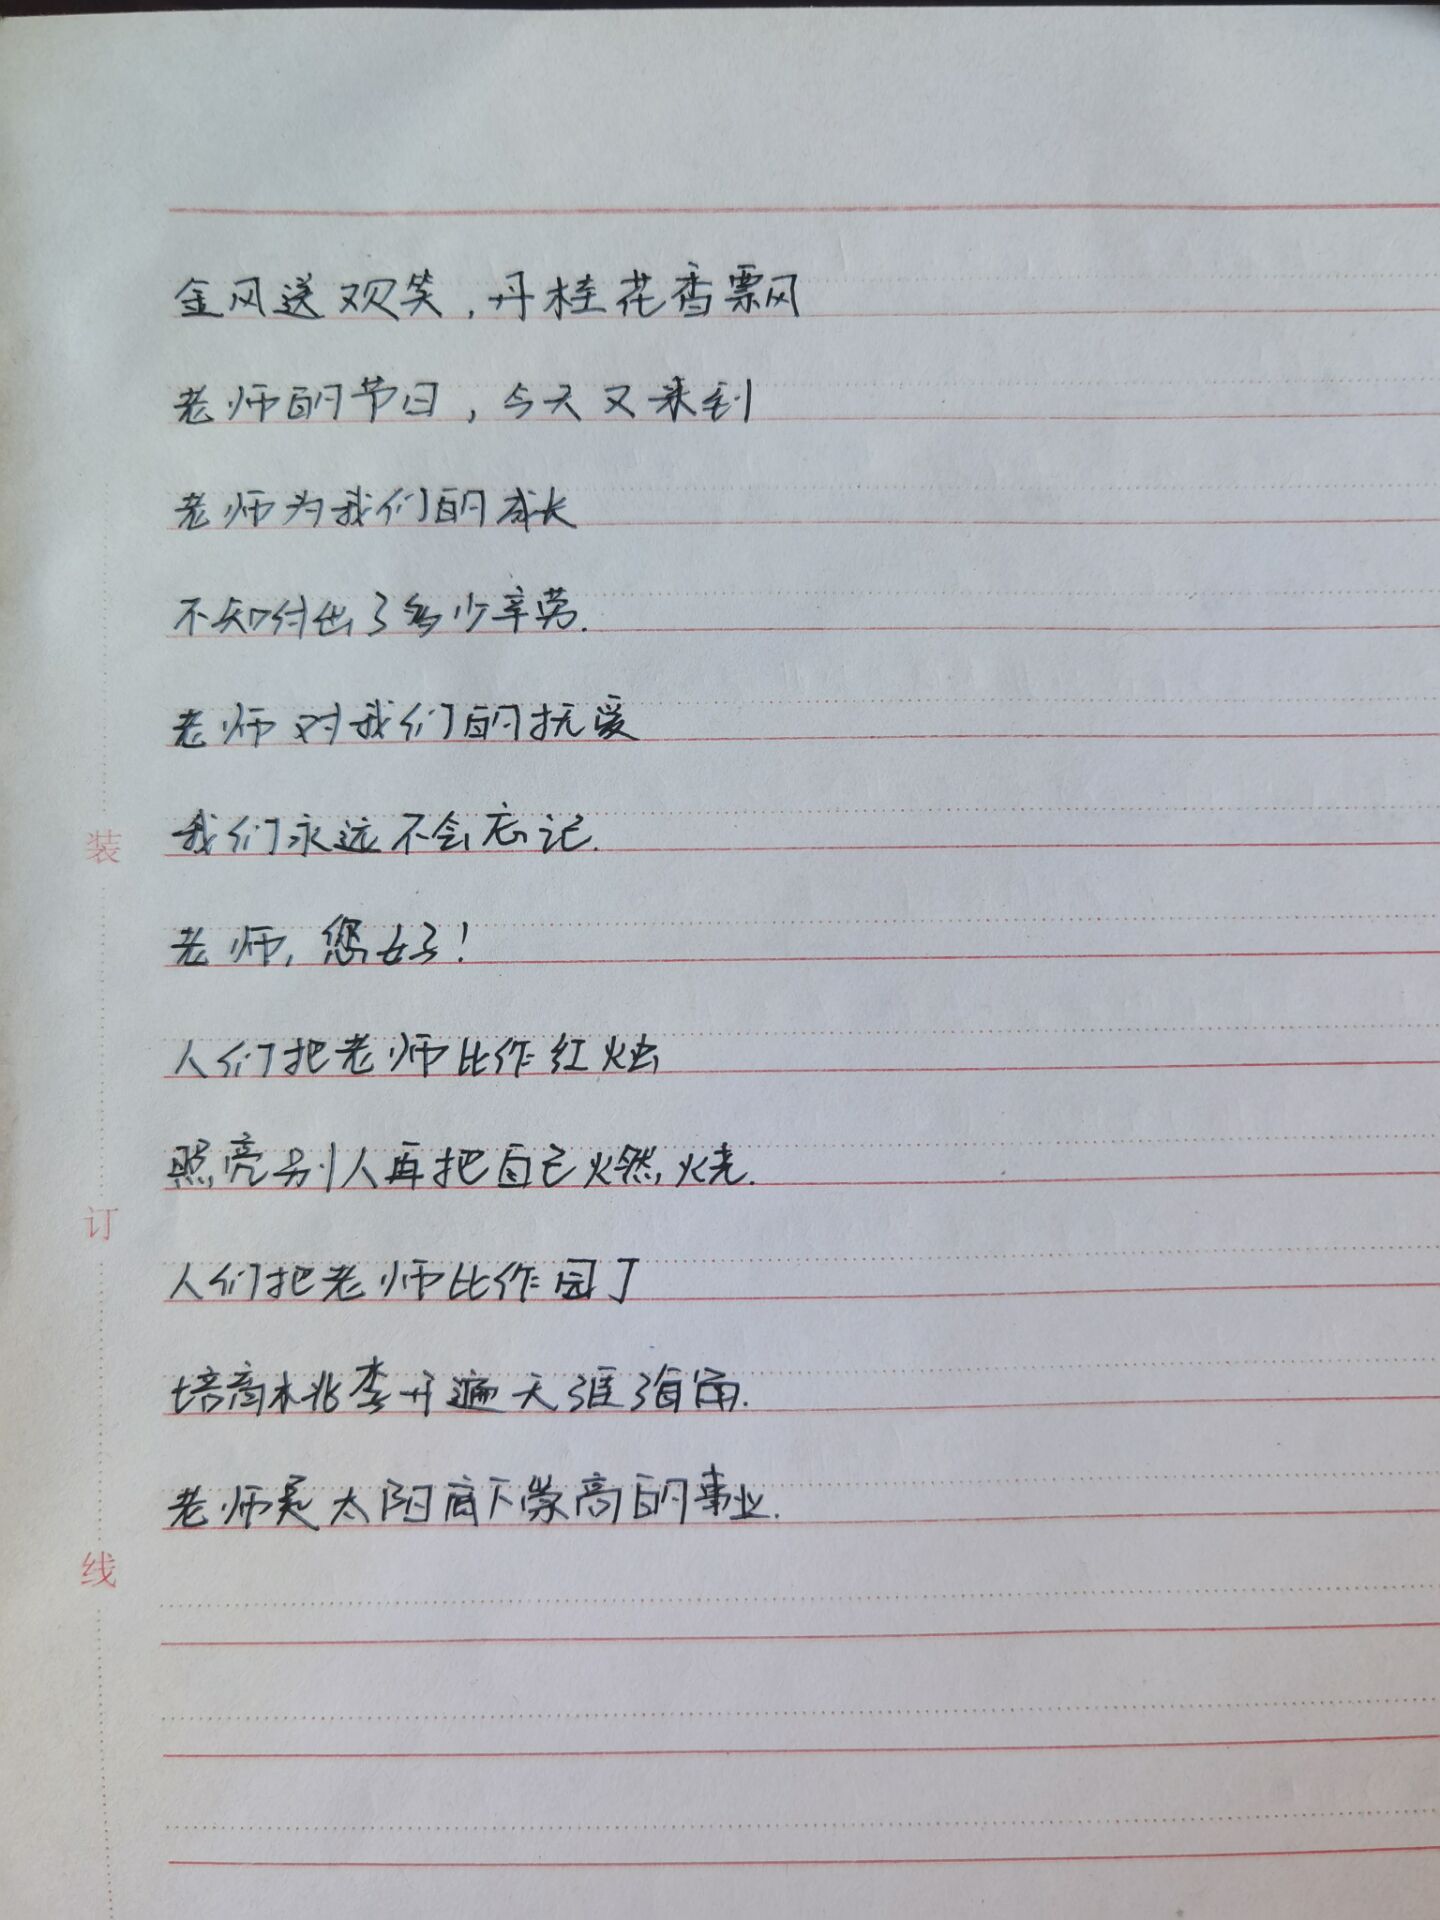 金风送观笑，丹桂花香飘
老师的节日，今天又来到
老师为我们的成长
不知付出了多少辛劳.
老师对我们的抚爱
我们永远不会忘记.
老师，您好！
人们把老师比作红烛
照亮别人再把自己燃烧.
人们把老师比作园丁
培育桃李开遍天涯海角.
老师是太阳底下崇高的事业.
装
订
线